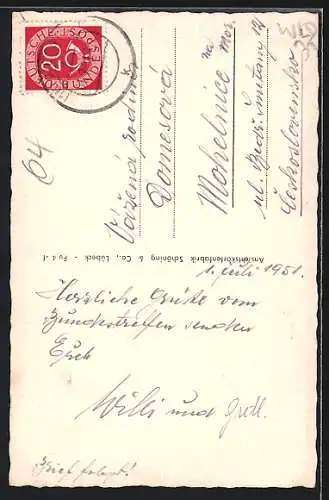 DEUTSCHE BUNDESPOST
20
64
Vážená rodina
Domesová
Mohelnice na
Mor.
ul. Bedř. Smetany 14
Československo
Ansichtskartenfabrik Schöning & Co., Lübeck - Fu 4 -f
1. Juli 1951.
Herzliche Grüße vom
Bundestreffen senden
Euch
Willi und Gretl.
Brief folgt!